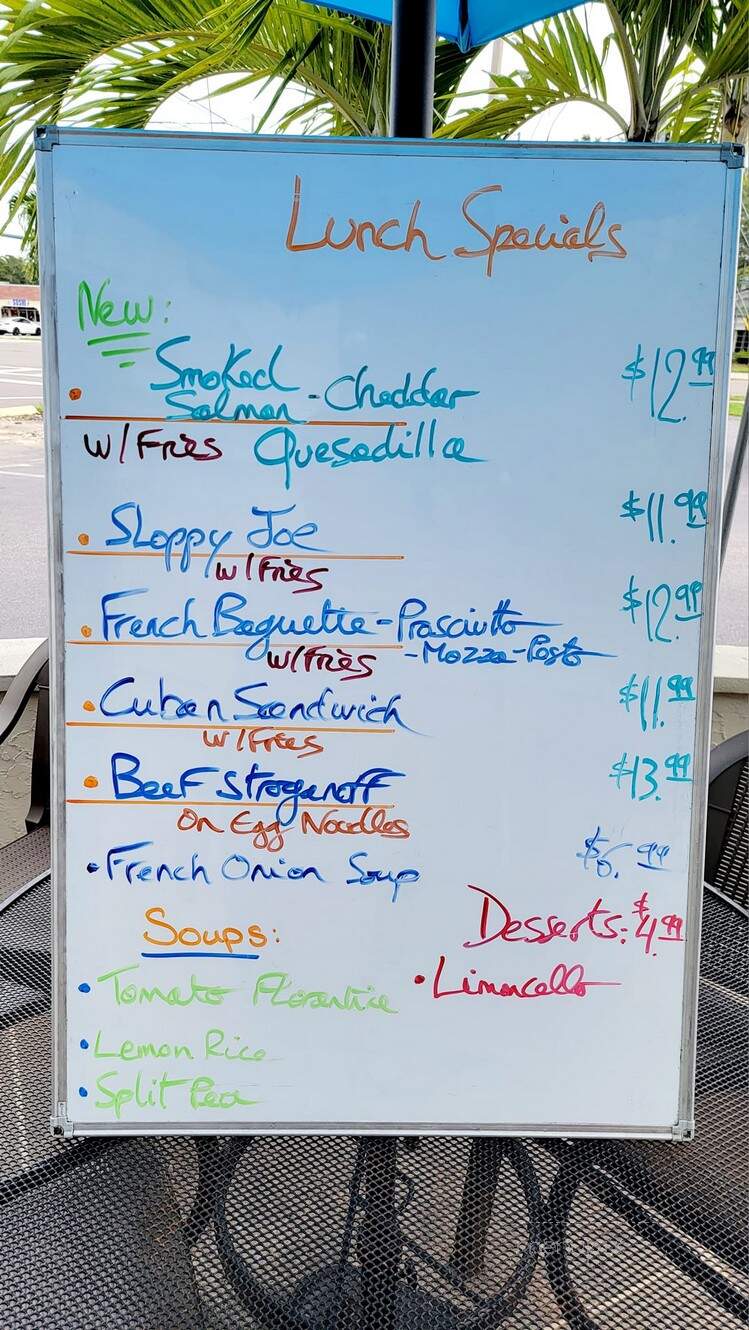 Lunch Specials
New:
• Smoked Salmon - Cheddar $12.99
w/Fries Quesadilla
• Sloppy Joe $11.99
w/Fries
• French Baguette - Prosciutto $12.99
w/Fries - Mozza - Pesto
• Cuban Sandwich $11.99
w/Fries
• Beef Stroganoff $13.99
On Egg Noodles
• French Onion Soup $6.99
Soups: Desserts: $4.99
• Tomato Florentine • Limoncello
• Lemon Rice
• Split Pea
SUSHI